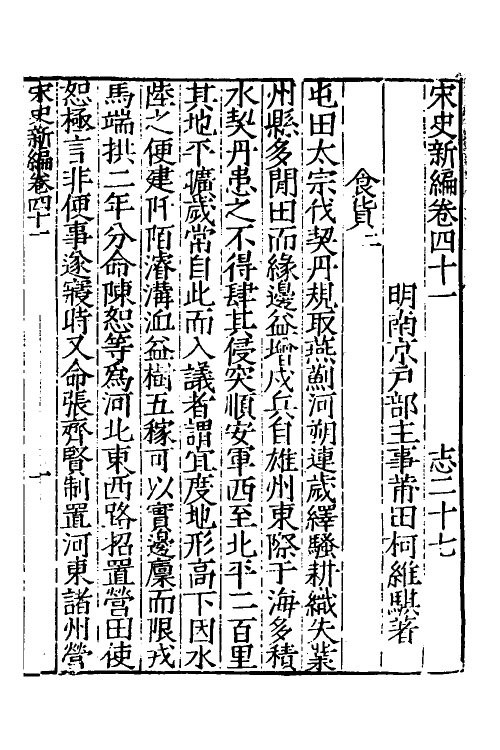 宋史新編卷四十一　　　　志二十七
明南京戶部主事莆田柯維騏著
食貨二
屯田太宗伐契丹規取燕薊河朔連歲繹騷耕織失業
州縣多閒田而緣邊益增戍兵自雄州東際于海多積
水契丹患之不得肆其侵突順安軍西至北平二百里
其地平壙歲常自此而入議者謂宜度地形高下因水
陸之便建阡陌濬溝洫益樹五稼可以實邊廩而限戎
馬端拱二年分命陳恕等爲河北東西路招置營田使
恕極言非便事遂寢時又命張齊賢制置河東諸州營
宋史新編卷四十一　　　　一